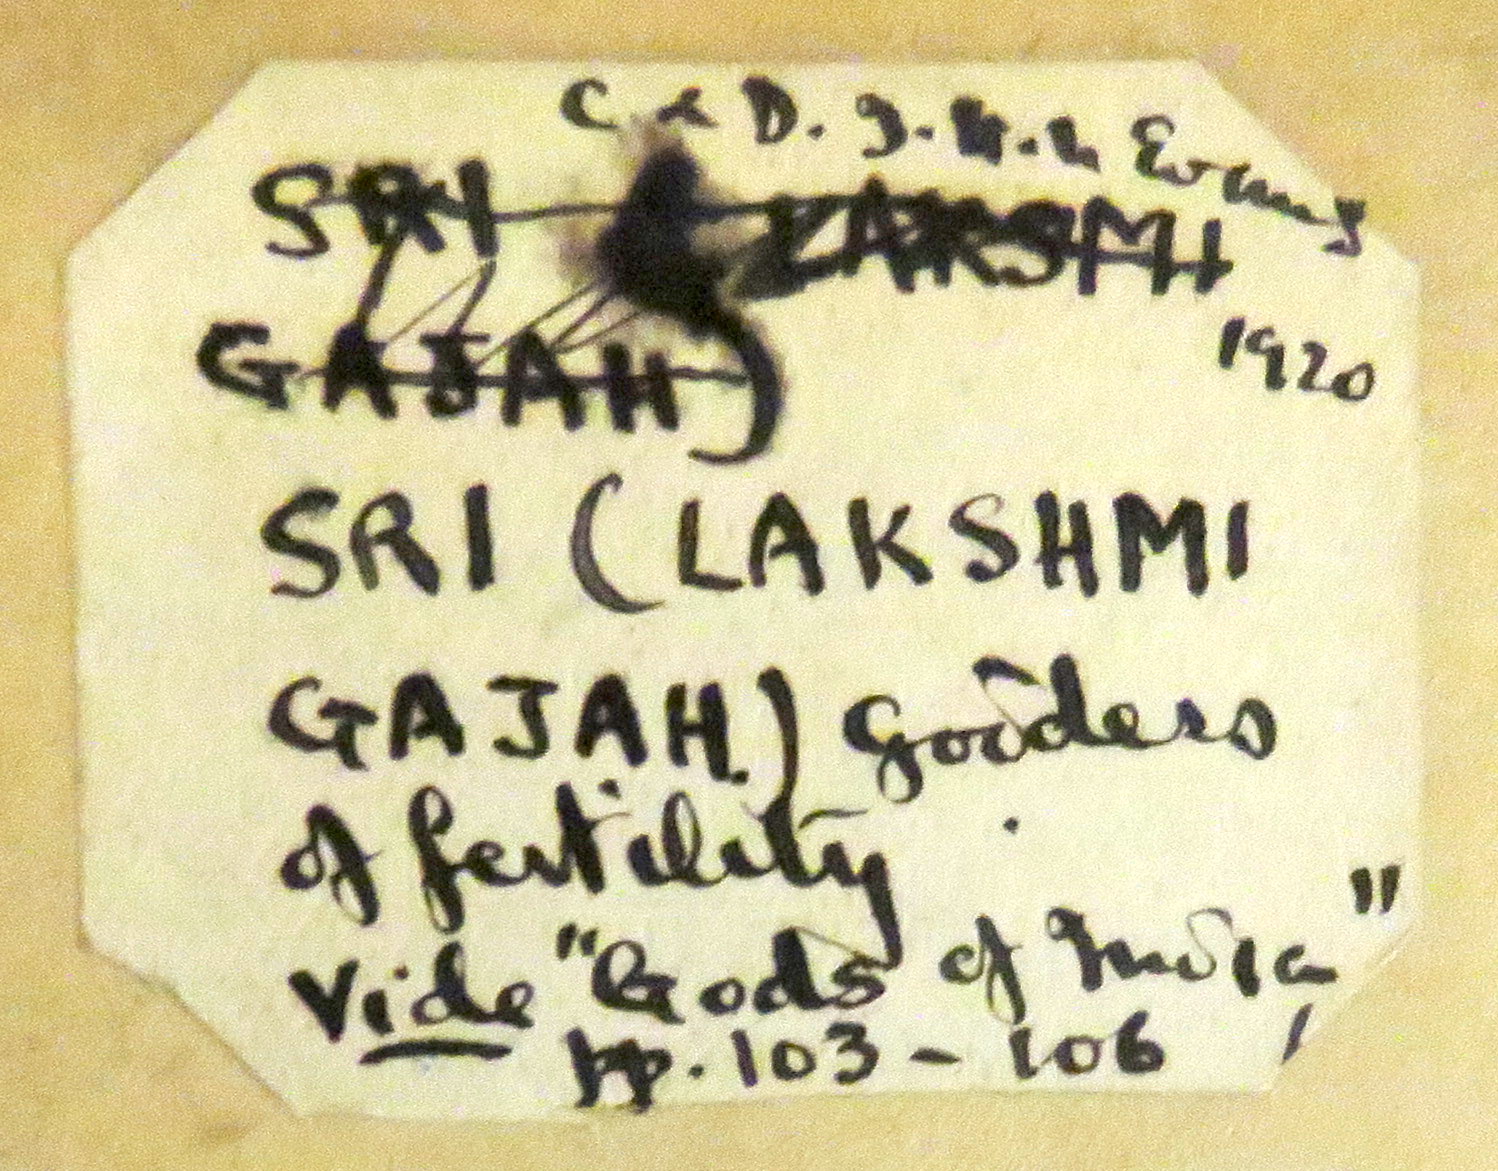 C & D. J.H.L Evans
SRI LAKSMI
1920
GAJAH)
SRI (LAKSHMI
GAJAH.) Goddess
of fertility.
Vide "Gods of India"
pp. 103-106